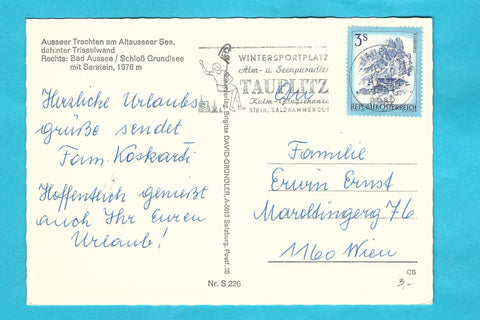 Ausseer Trachten am Altausseer See,
dahinter Trisselwand
Rechts: Bad Aussee / Schloß Grundlsee
mit Sarstein, 1976 m
Herzliche Urlaubs
grüße sendet
Fam. Koskarti
Hoffentlich genießt
auch Ihr Euren
Urlaub!
WINTERSPORTPLATZ
Alm- u. Seenparadies
TAUPLITZ
STEIR. SALZKAMMERGUT
3S
REPUBLIK ÖSTERREICH
Brigitte DAVID-GRÜNDLER, A-5013 Salzburg, Postf. 35
An
Familie
Erwin Ernst
Maroltingerg 76
1160 Wien
Nr. S 226
CB
3.-